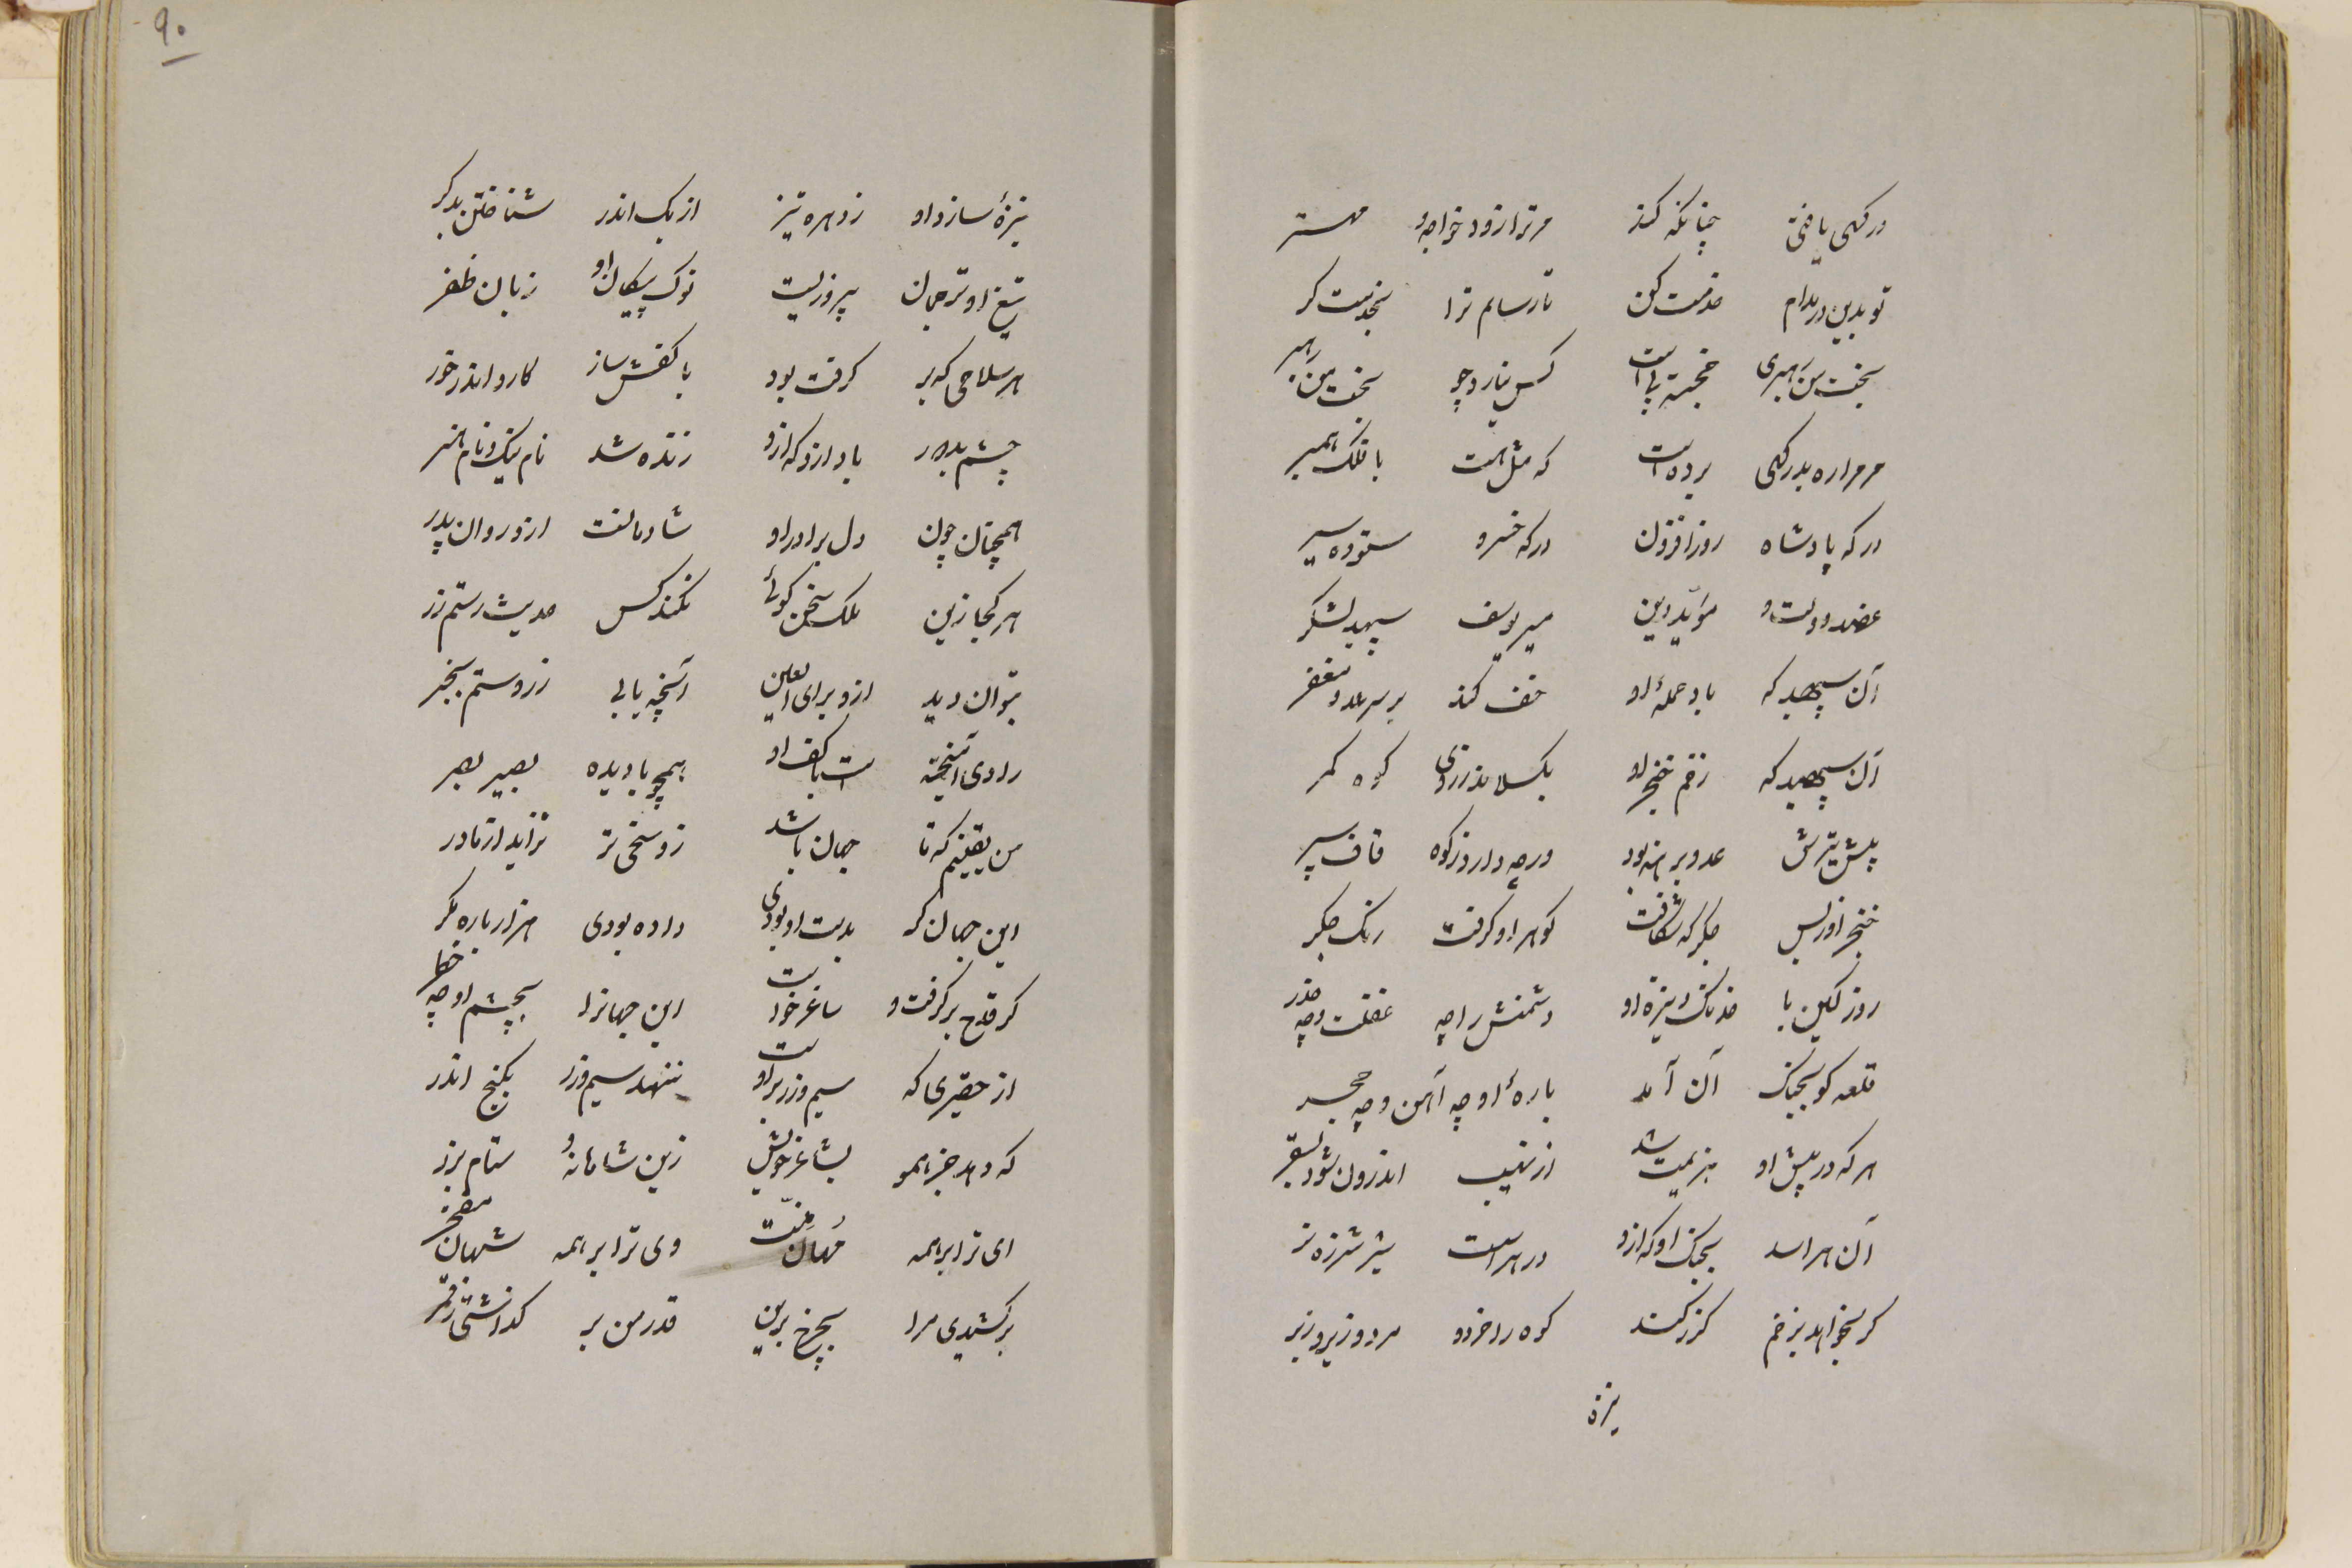 درگهی یافتی چنانکه کند مرترا زود خواجهٔ مهستر
تو بدین در مدام خدمت کن تا رسالم ترا بخدمت کر
بخت من رهبری خجسته پی است کس نیارد چو بخت من رهبر
مر مرا ره بدرگهی برده است که مثل است با فلک همبر
درکه پادشاه روز افزون درکه خسرو ستوده سیر
عضد دولت و مؤید دین میر یوسف سپهبد لشکر
آن سپهبد که باد حملهٔ او خف کند بر سر عدو مغفر
آن سپهبد که زخم خنجر او بکسلاند ز روی کوه کمر
پیش تیرش عدو برهنه بود ورچه دارد ز کوه قاف سپر
خنجر او ز بس جکر که شکافت کوهر او کرفت رنک جکر
روز کین با خدنک و نیزه او دشمنش را چه غفلت و چه حذر
قلعه کو بجنک آن آمد بارهٔ او چه آهن و چه حجر
هرکه در پیش او هزیمت شد از نهیب اندرون شود بسقر
آن هراسد بجنک او که ازو در هراسست شیر شرزه نر
کر بخواهد بزخم کرز کند کوه را خرد و مرد و زیر و زبر
نیزهٔ
۹۰
نیزهٔ سازد او ز ده ره تیز از یک اندر شناختن بدکر
تیغ او ترجمان پیروزیست نوک پیکان او زبان ظفر
هر سلاحی که بر کرفت بود با کفش ساز کارد اندر خور
چشم بد دور باد ازو که ازو زنده شد نام نیک و نام هنر
همچنان چون دل برادر او شادمانست ازو روان پدر
هر کجا زین ملک سخن کوئی نکند کس حدیث رستم زر
بتوان دید ازو برای العین آنچه یابی ز روستم بخبر
رادی آمیخته است با کف او همچو با دیده بصیر بصر
من یقینم که تا جهان باشد زو سخی تر نزاید از مادر
این جهان کر بدست او بودی داده بودی هزار باره مکر
کر قدح بر کرفت و ساغر خواست این جهانرا بچشم او چه خطر
از حقیری که سیم و زر بر اوست ننهد سیم و زر بکنج اندر
که دهد جز همو بشاعر خویش زین شاهانهٔ و ستام بزر
ای ترا بر همه مهان منّت وی ترا بر همه شهان مفخر
برکشیدی مرا بچرخ برین قدر من بر کذاشتی ز قمر